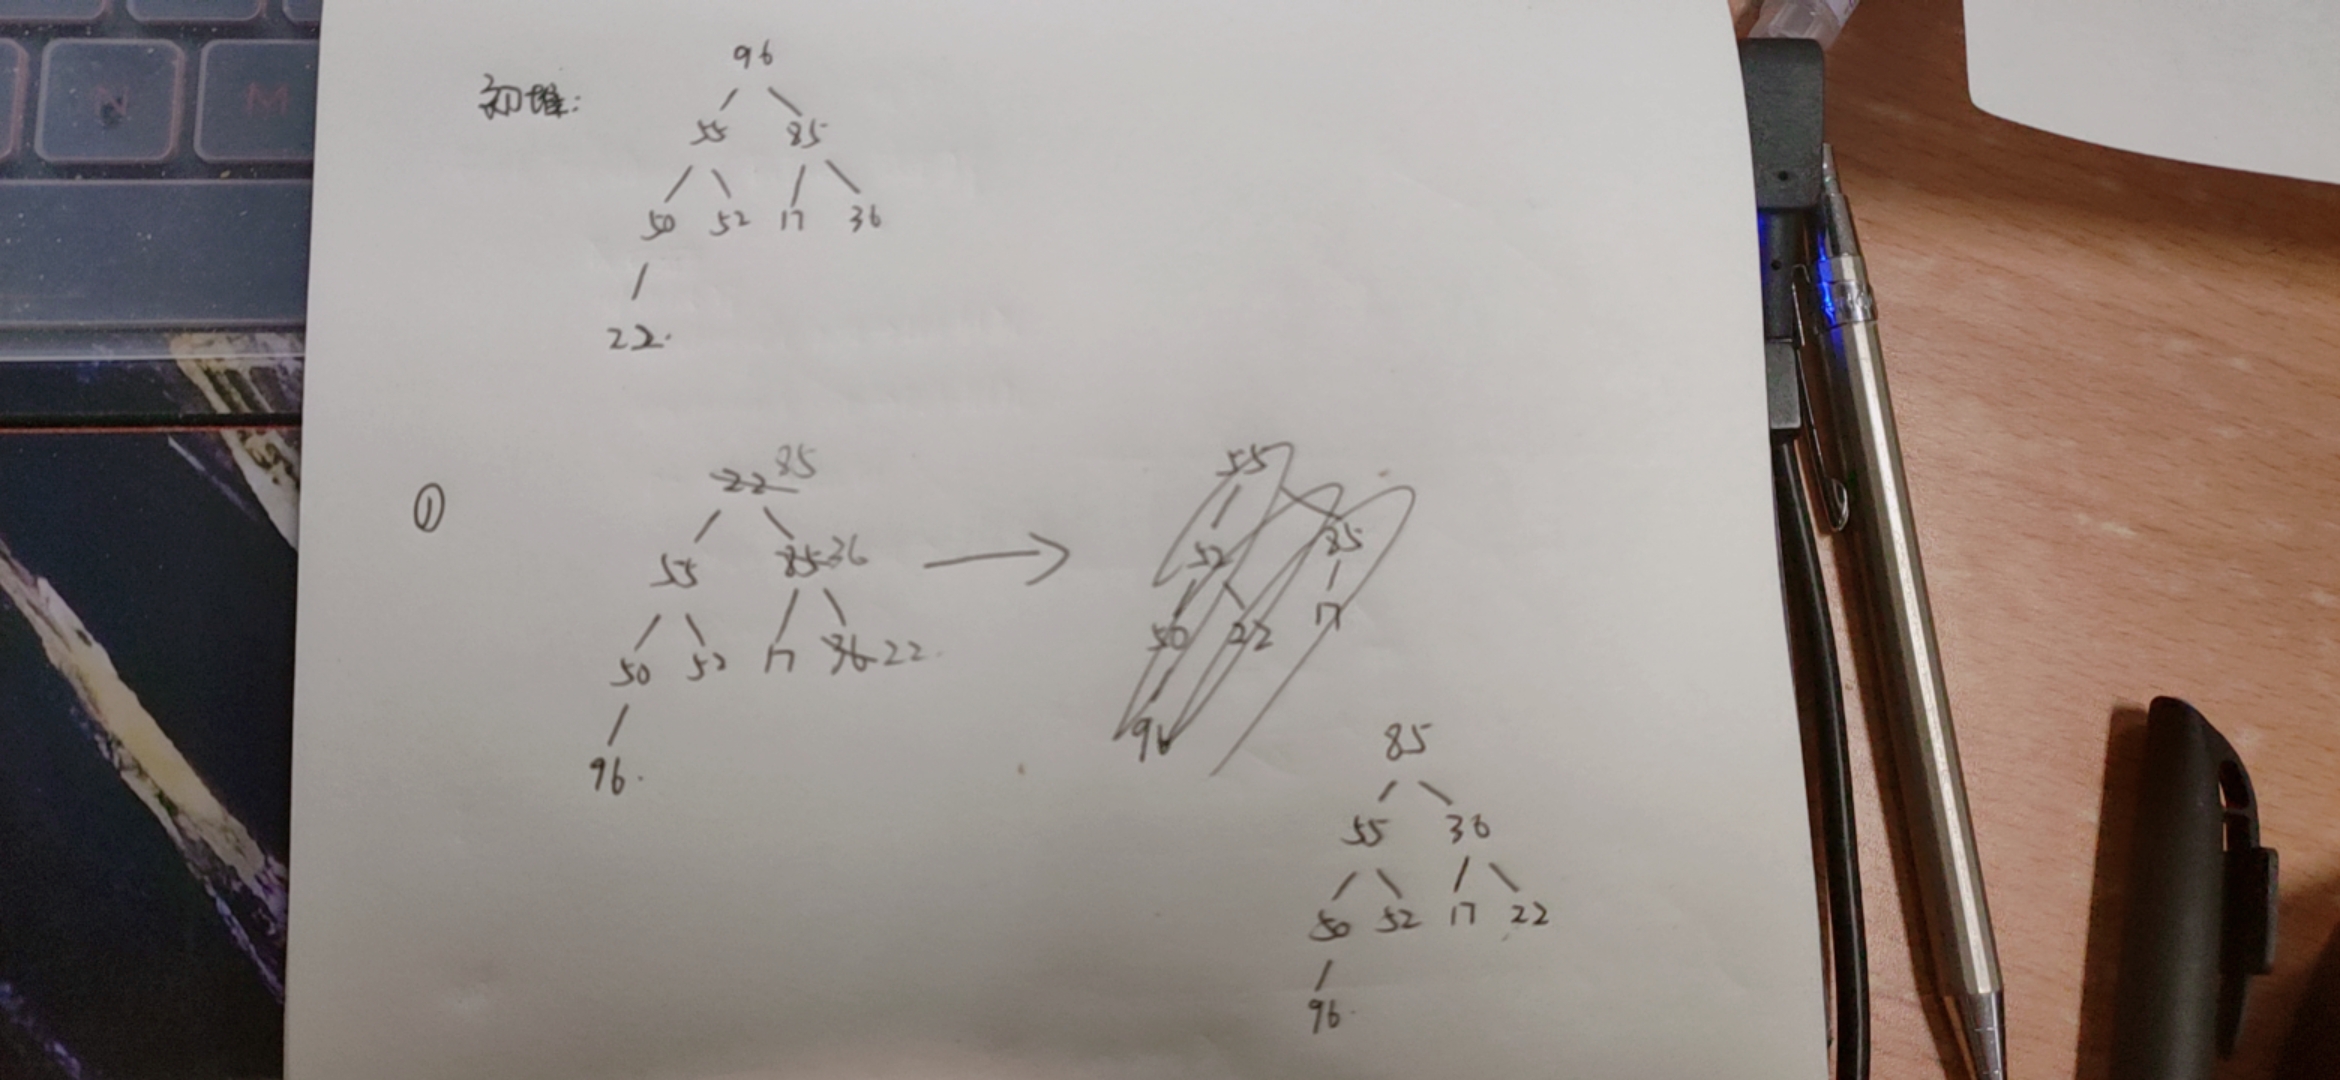 初堆:
96
55 85
50 52 17 36
22.
①
22 85
55 85 36
50 52 17 36 22.
96.
55
52 85
50 22 17
96
85
55 36
50 52 17 22
96.
N M